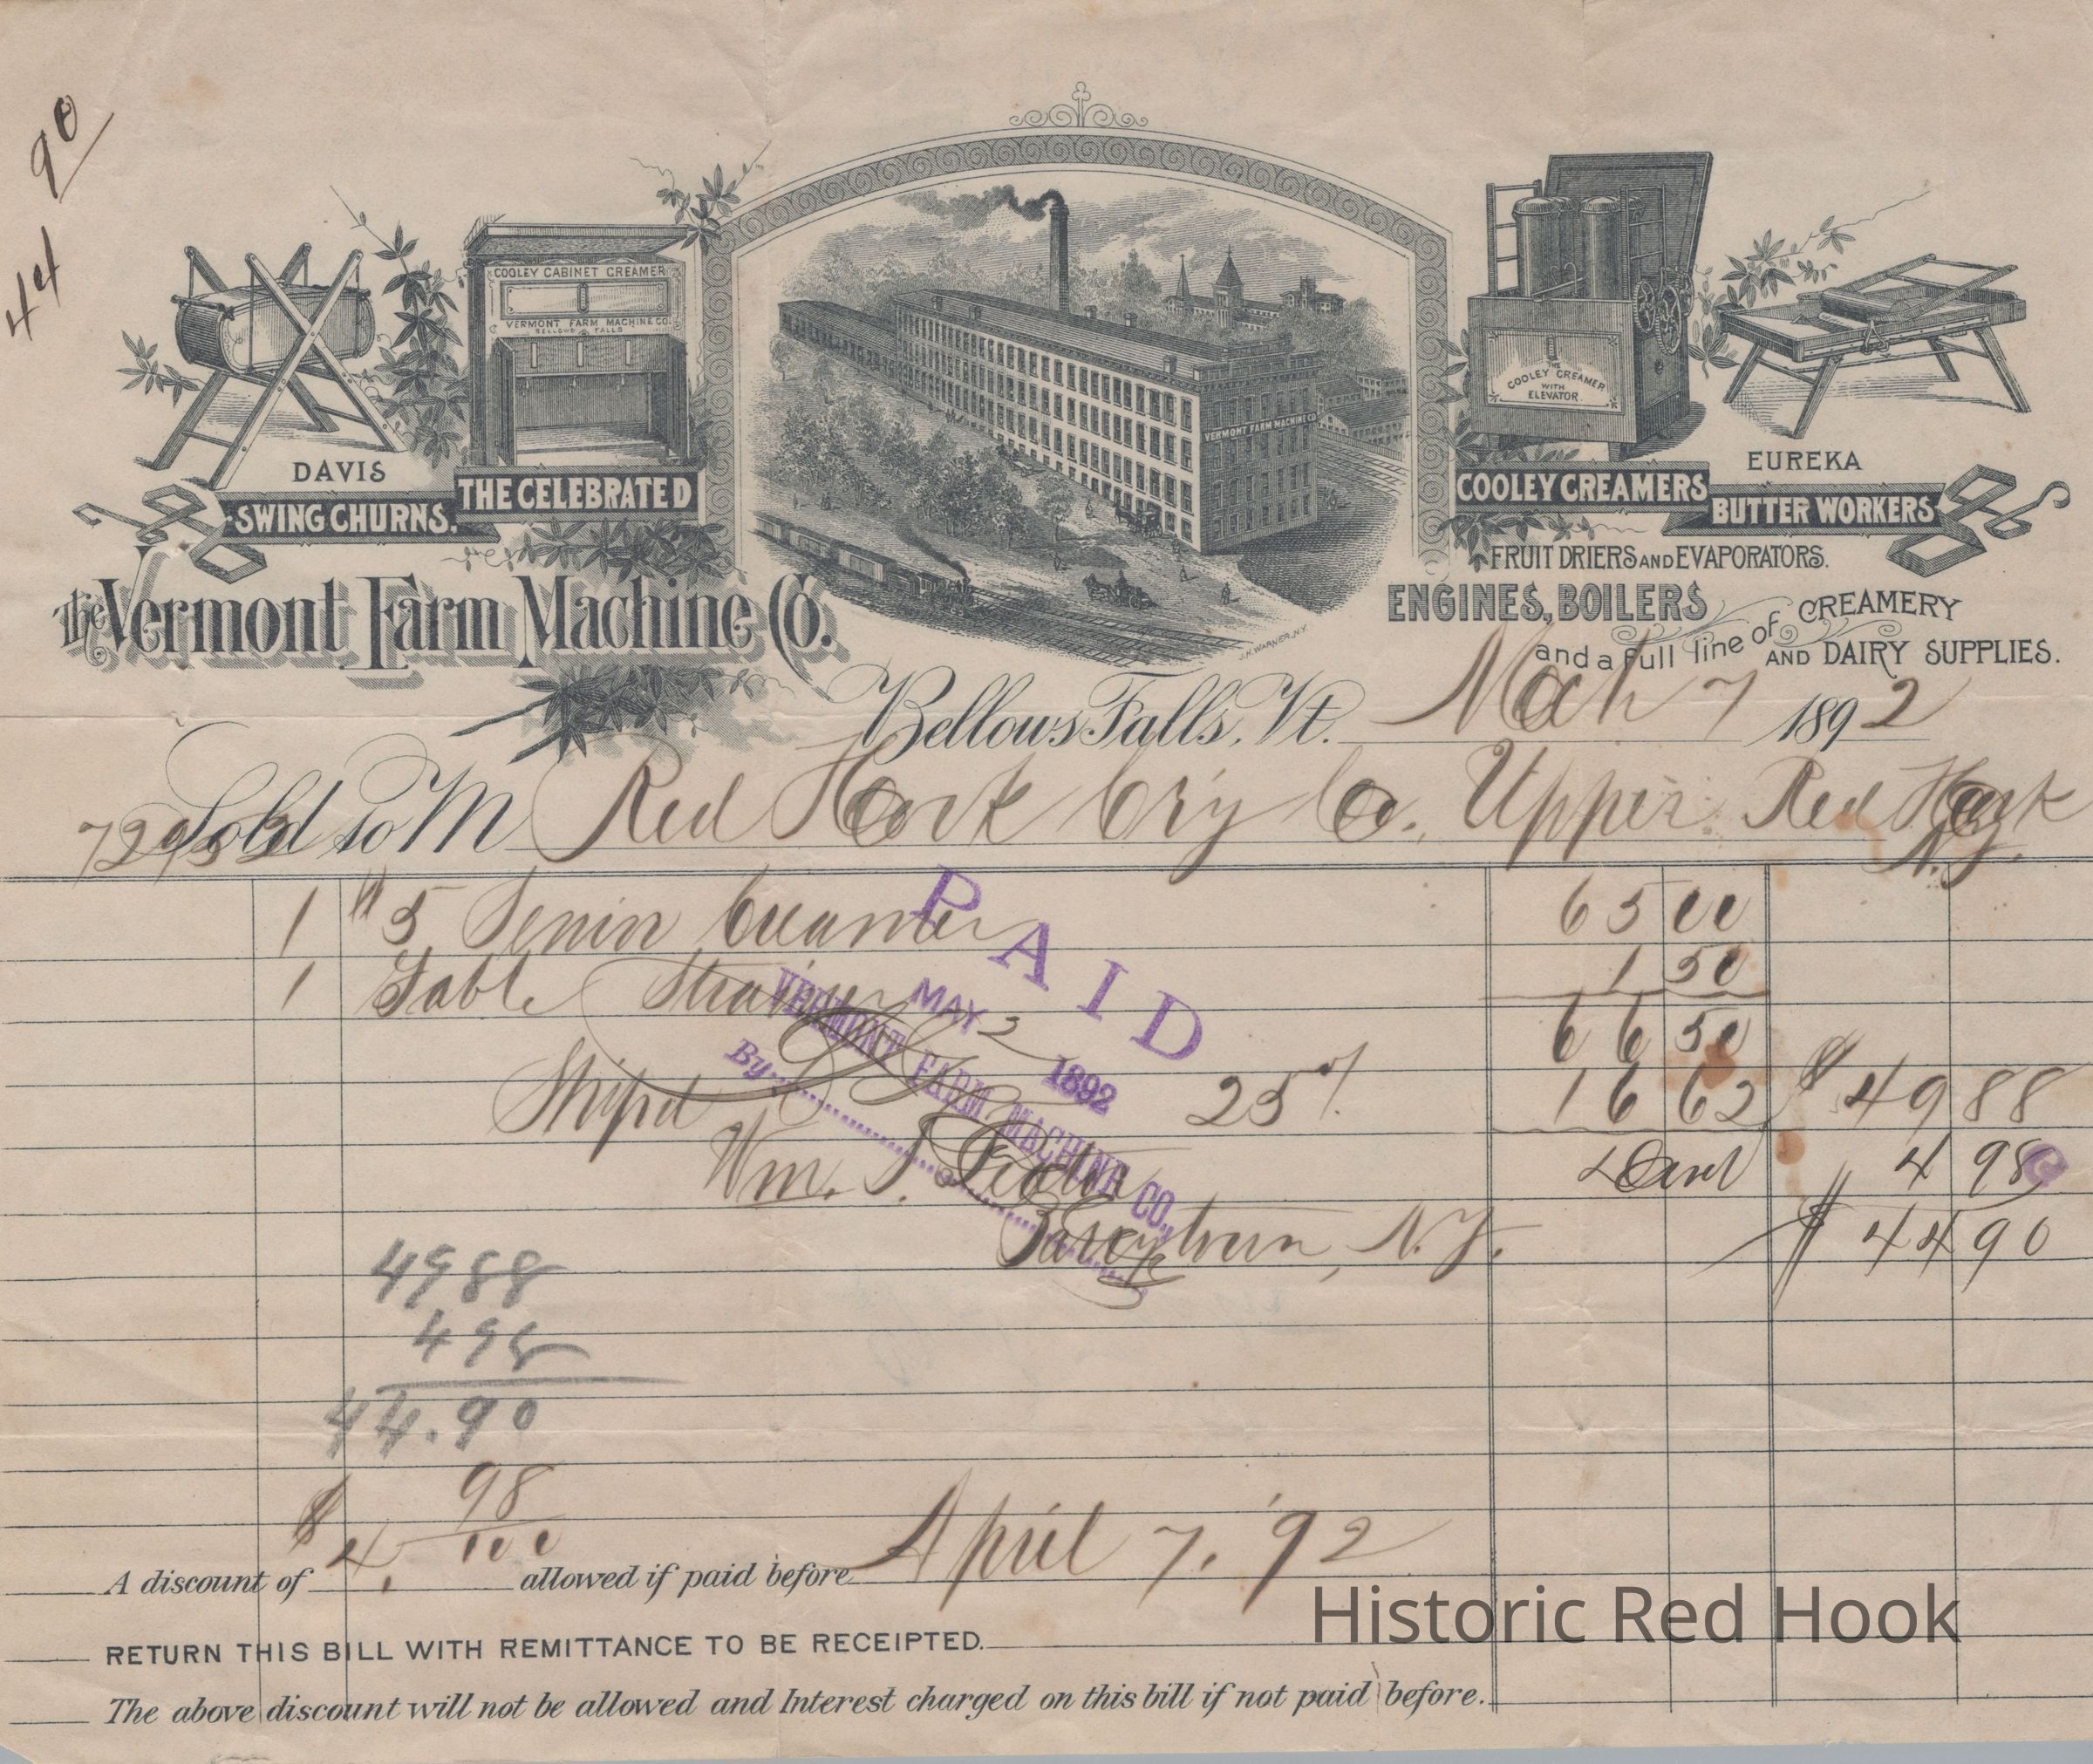 44 90
COOLEY CABINET CREAMER
VERMONT FARM MACHINE CO.
BELLOWS FALLS
VERMONT FARM MACHINE CO
THE
COOLEY CREAMER
WITH
ELEVATOR.
DAVIS
SWING CHURNS.
THE CELEBRATED
COOLEY CREAMERS
EUREKA
BUTTER WORKERS
FRUIT DRIERS AND EVAPORATORS.
ENGINES, BOILERS
and a full line of CREAMERY
AND DAIRY SUPPLIES.
The Vermont Farm Machine Co.
J.H. WARNER, N.Y.
Bellows Falls, Vt. Mch 7 1892
Sold to M Red Hook Cry Co. Upper Red Hook
N.Y.
1 #5 Senior Creamer 65 00
1 Table Strainer 1 50
66 50
Shipd 25% 16 62 $ 49 88
Wm. S. 4 98
Tarrytown, N.Y. $ 44 90
PAID
MAY 2 1892
VERMONT FARM MACHINE CO.,
By
4988
498
44.90
A discount of $4. 98/100 allowed if paid before April 7, '92
RETURN THIS BILL WITH REMITTANCE TO BE RECEIPTED.
The above discount will not be allowed and Interest charged on this bill if not paid before.
Historic Red Hook